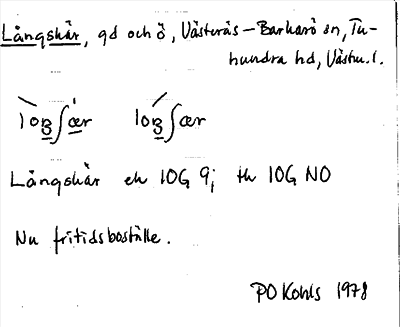 Långskär, gd och ö, Västerås-Barkarö sn, Tu-
hundra hd, Västm.l.
Långskär ek 10G 9i th 10G NO
Nu fritidsboställe.
PO Kohls 1978